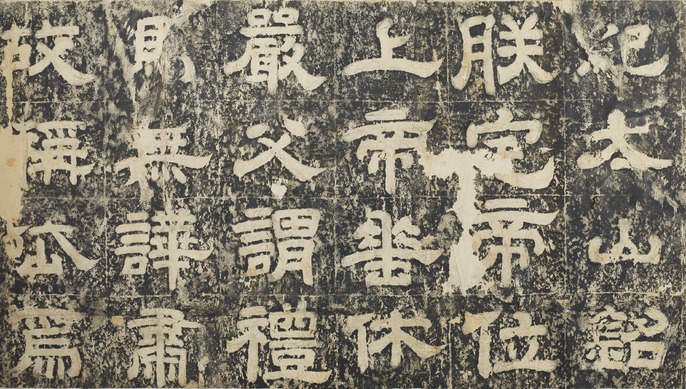 紀太山銘
朕宅帝位
上帝垂休
嚴父謂禮
馬無譁肅
故稱岱焉